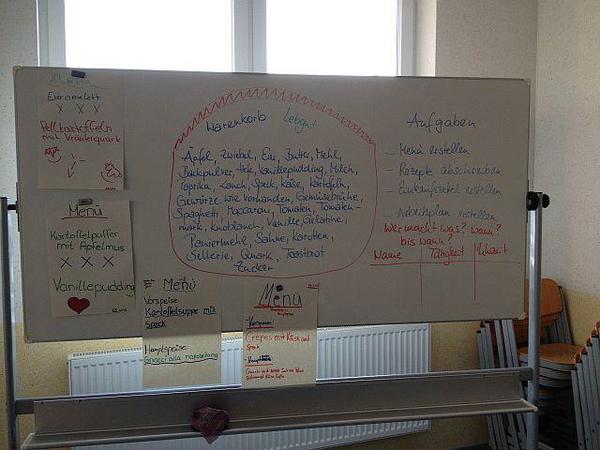 Menü
Eieromelett
X X X
Pellkartoffeln
mit Kräuterquark
Menü
Kartoffelpuffer
mit Apfelmus
X X X
Vanillepudding
Menü
Vorspeise
Kartoffelsuppe mit
Speck
Hauptspeise
Gnocci alla napoletana
Menü
Vorspeise:
Crêpes mit Käse und
Speck
Warenkorb
Äpfel, Zwiebel, Eier, Butter, Mehl,
Backpulver, Hefe, Vanillepudding, Milch,
Paprika, Lauch, Speck, Käse, Kartoffeln,
Gewürze wie vorhanden, Gemüsebrühe,
Spagneti, Maccaroni, Tomaten, Tomaten-
mark, Knoblauch, Vanille, Gelatine,
Paniermehl, Sahne, Karotten,
Sellerie, Quark, Toastbrot
Zucker
Aufgaben
- Menü erstellen
- Rezepte abschreiben
- Einkaufszettel erstellen
- Arbeitsplan erstellen
Wer macht was? wann?
bis wann?
Name Tätigkeit Uhrzeit